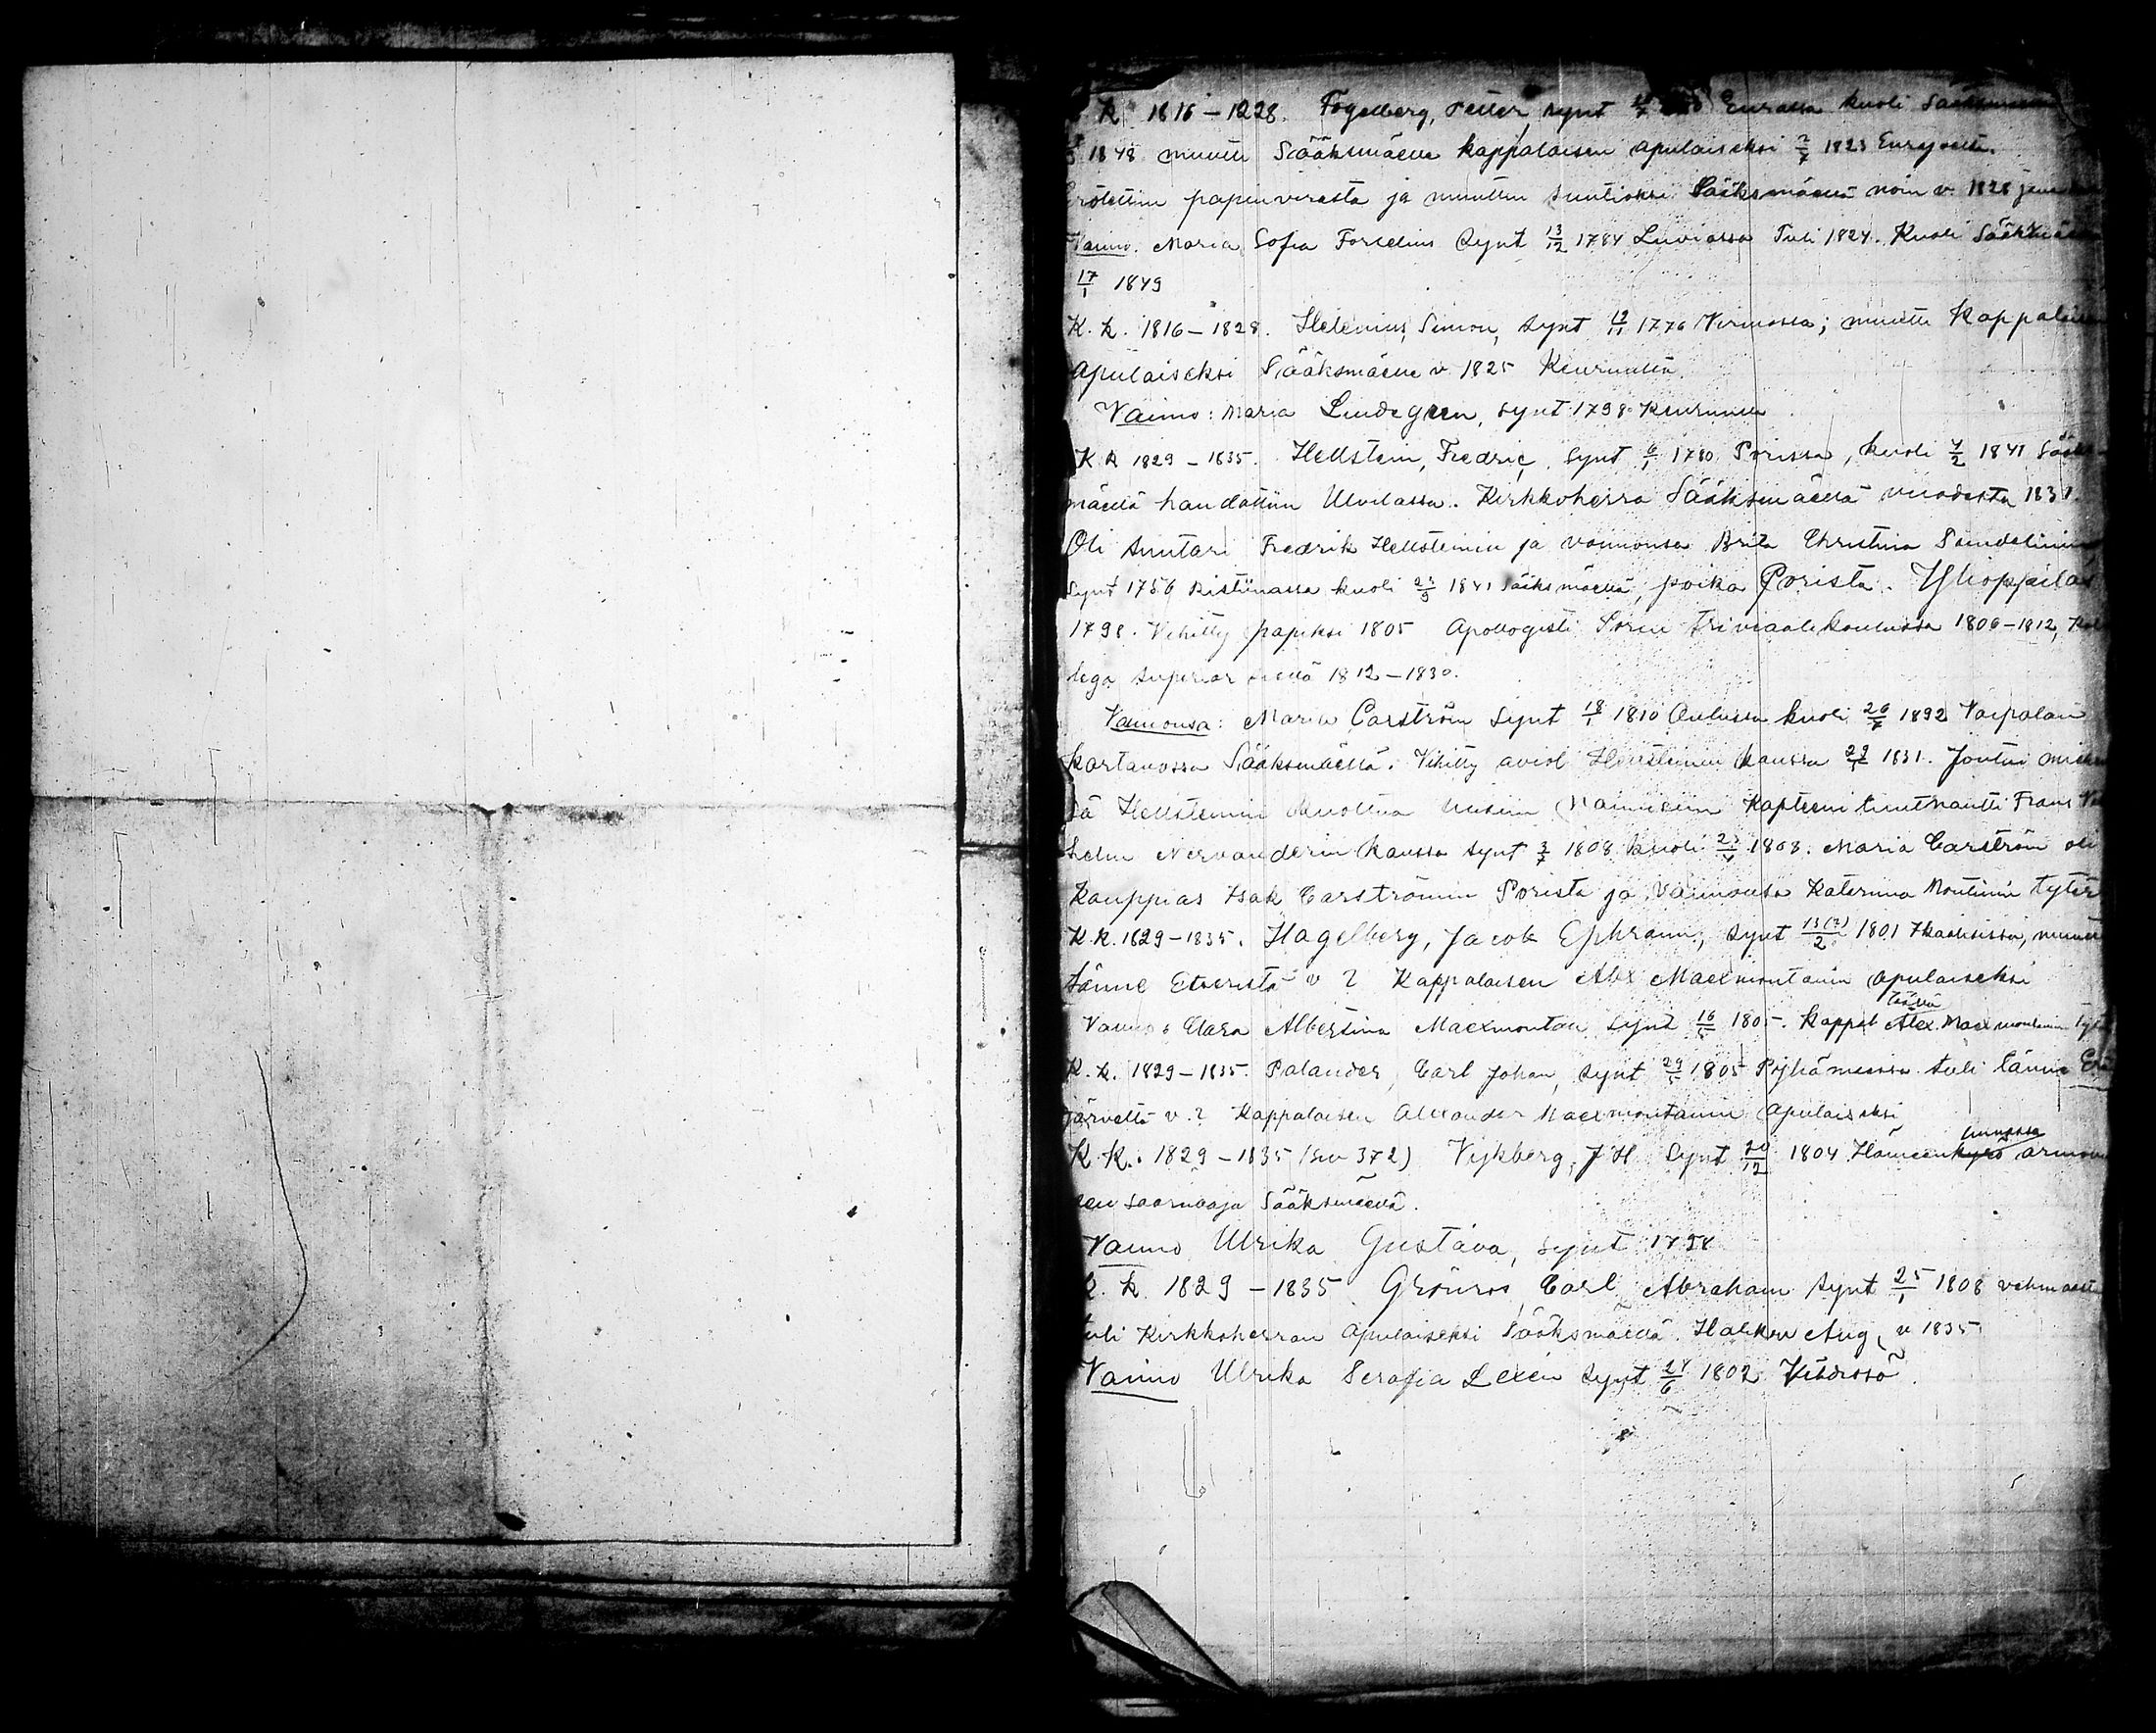 K 1816 – 1828. Fogelberg, Petter, synt Eurassa kuoli Sääksmäe
1848 muutti Sääksmäelle kappalaisen apulaiseksi 2/7 1823 Eurajoelta.
Erotettiin papinvirasta ja muuttui suntioksi Sääksmäellä noin v. 1828
Vaimo. Maria Sofia Forselius Synt 13/12 1784 Luviassa Tuli 1824. Kuoli Sääksmäellä
17/1 1849
K. k. 1816 – 1828. Helenius, Simon, synt 1776 Virmossa; muutti kappalaisen
apulaiseksi Sääksmäelle v. 1825 Keuruulta.
Vaimo: Maria Lindegren, synt 1798 Keuruulla
K k 1829 – 1835. Hellstein, Fredric, synt 6/1 1780 Porissa, kuoli 4/2 1841 Sääks-
mäellä haudattiin Ulvilassa. Kirkkoherra Sääksmäellä vuodesta 1831.
Oli suutari Fredrik Hellsteinin ja vaimonsa Brita Christina Sundelinin,
synt 1756 Ristiinassa kuoli 1841 Sääksmäellä, poika Porista. Ylioppilas
1798. Vihitty papiksi 1805 Apologisti Porin triviaalikoulussa 1806–1812, Kol
lega superior siellä 1812 – 1830.
Vaimonsa: Maria Carström synt 18/1 1810 Oulussa kuoli 26/7 1892 Voipalan
kartanossa Sääksmäellä. Vihitty aviol Hellsteinin kanssa 1831. Joutui
sä Hellsteinin kuoltua uusiin naimisiin kapteeni luutnantti Frans Vil
helm Nervanderin kanssa synt 3/7 1808 kuoli 1808. Maria Carström oli
kauppias Isak Carströmin Porista ja vaimonsa Katarina Montinin tytär
K. k. 1829 – 1835. Hagelberg, Jacob Ephraim, synt 13(?)/2 1801 Ikaalisissa, muutti
tänne Etseristä v ? Kappalaisen Alex Maexmontanin apulaiseksi
Vaimo: Clara Albertina Maexmontan synt 16/5 1805. Kappal täällä Alex. Maexmontanin tytär
K. k. 1829 – 1835. Palander, Carl Johan, synt 1805 Pyhämaassa tuli tänne Erä
järveltä v. ? Kappalaisen Alexander Maexmontanin apulaiseksi
K. k. 1829 – 1835 (siv 372) Vijkberg, J H Synt 20/12 1804 Hämeenkyrö linnassa armovu
den saarnaaja Sääksmäellä.
Vaimo Ulrika Gustava, synt 1798
K. k. 1829 – 1835 Grönros, Carl Abraham synt 25/1 1808 Vehmaalla
tuli Kirkkoherran apulaiseksi Sääksmäellä. Halikon Aug, v 1835
Vaimo Ulrika Serafia Lexen synt 24/6 1802 Vihdissä.